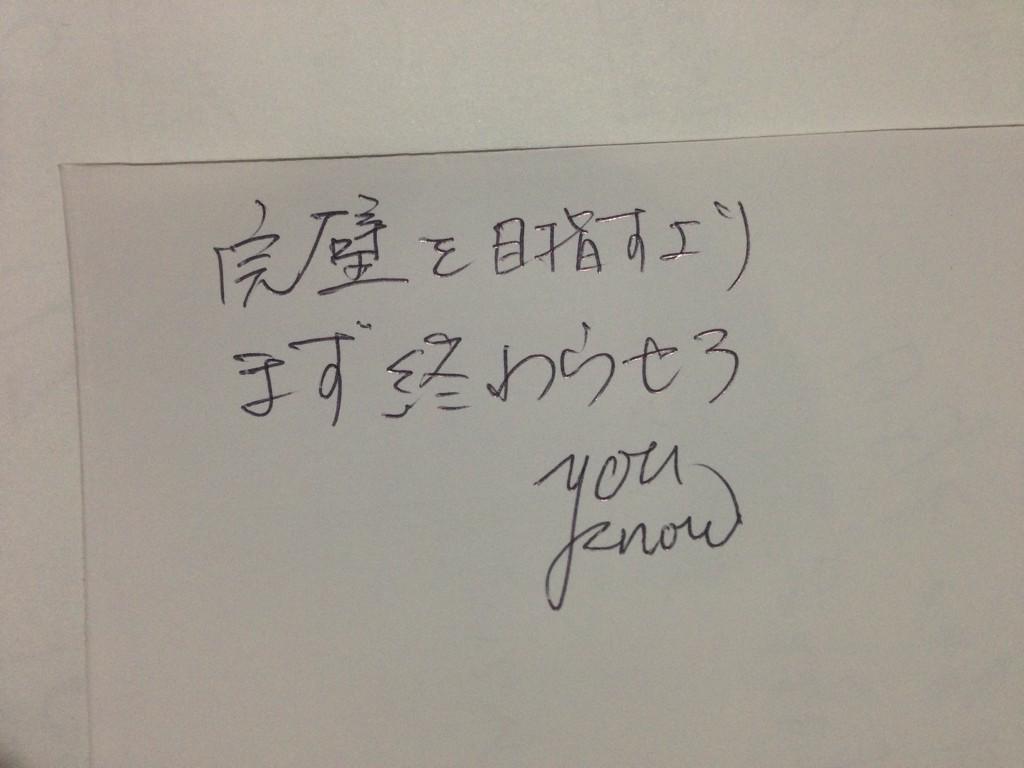 完璧を目指すより
まず終わらせろ
you
know